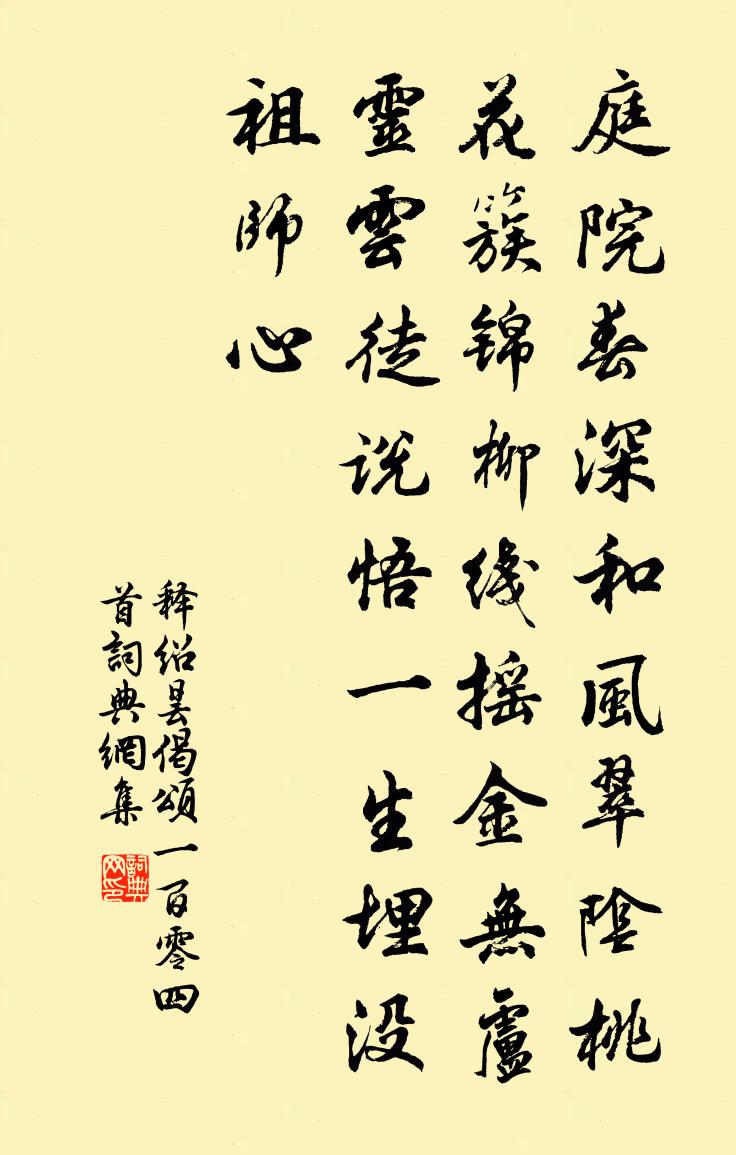 庭院春深和風翠陰桃
花簇錦柳线摇金無盧
靈雲徒説悟一生埋没
祖師心
释绍昙偈頌一百零四
首詞典網集
詞典网印